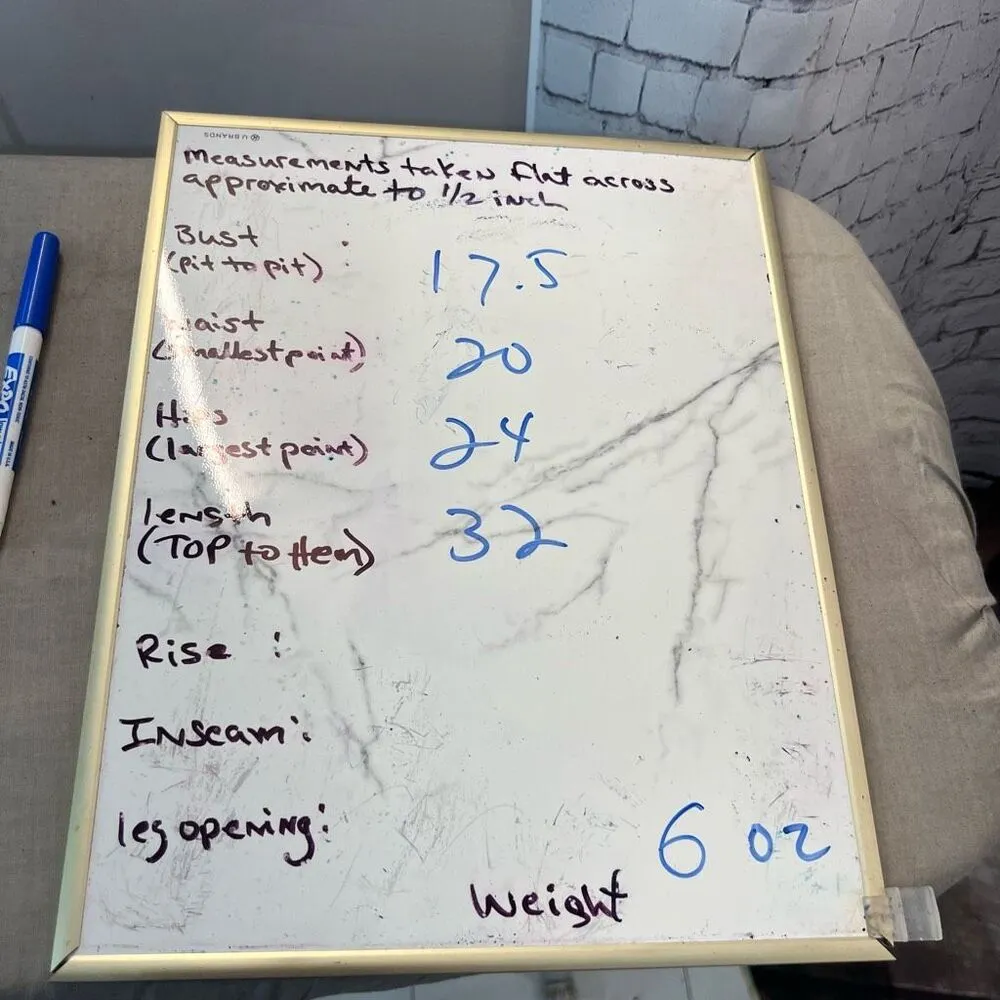 U BRANDS
Measurements taken flat across
approximate to 1/2 inch
Bust :
(pit to pit) 17.5
(smallest point) 20
Hips
(largest point) 24
length
(TOP to Hem) 32
Rise :
Inseam:
leg opening:
6 oz
Weight
EXPO